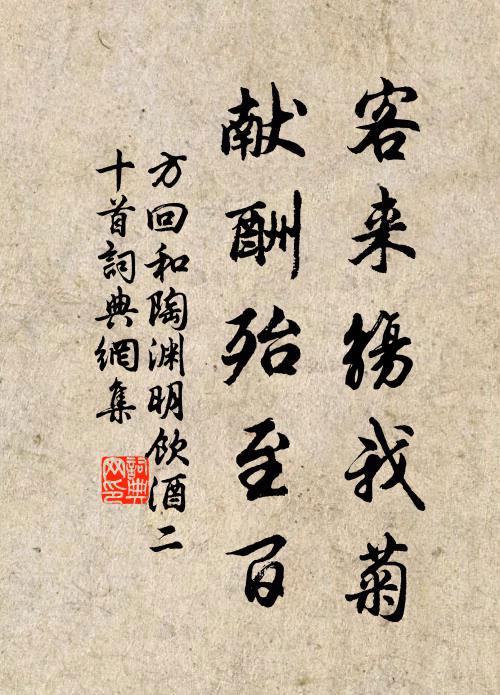 客来觞我菊
献酬殆至百
方回和陶渊明饮酒二
十首詞典網集
詞典網印